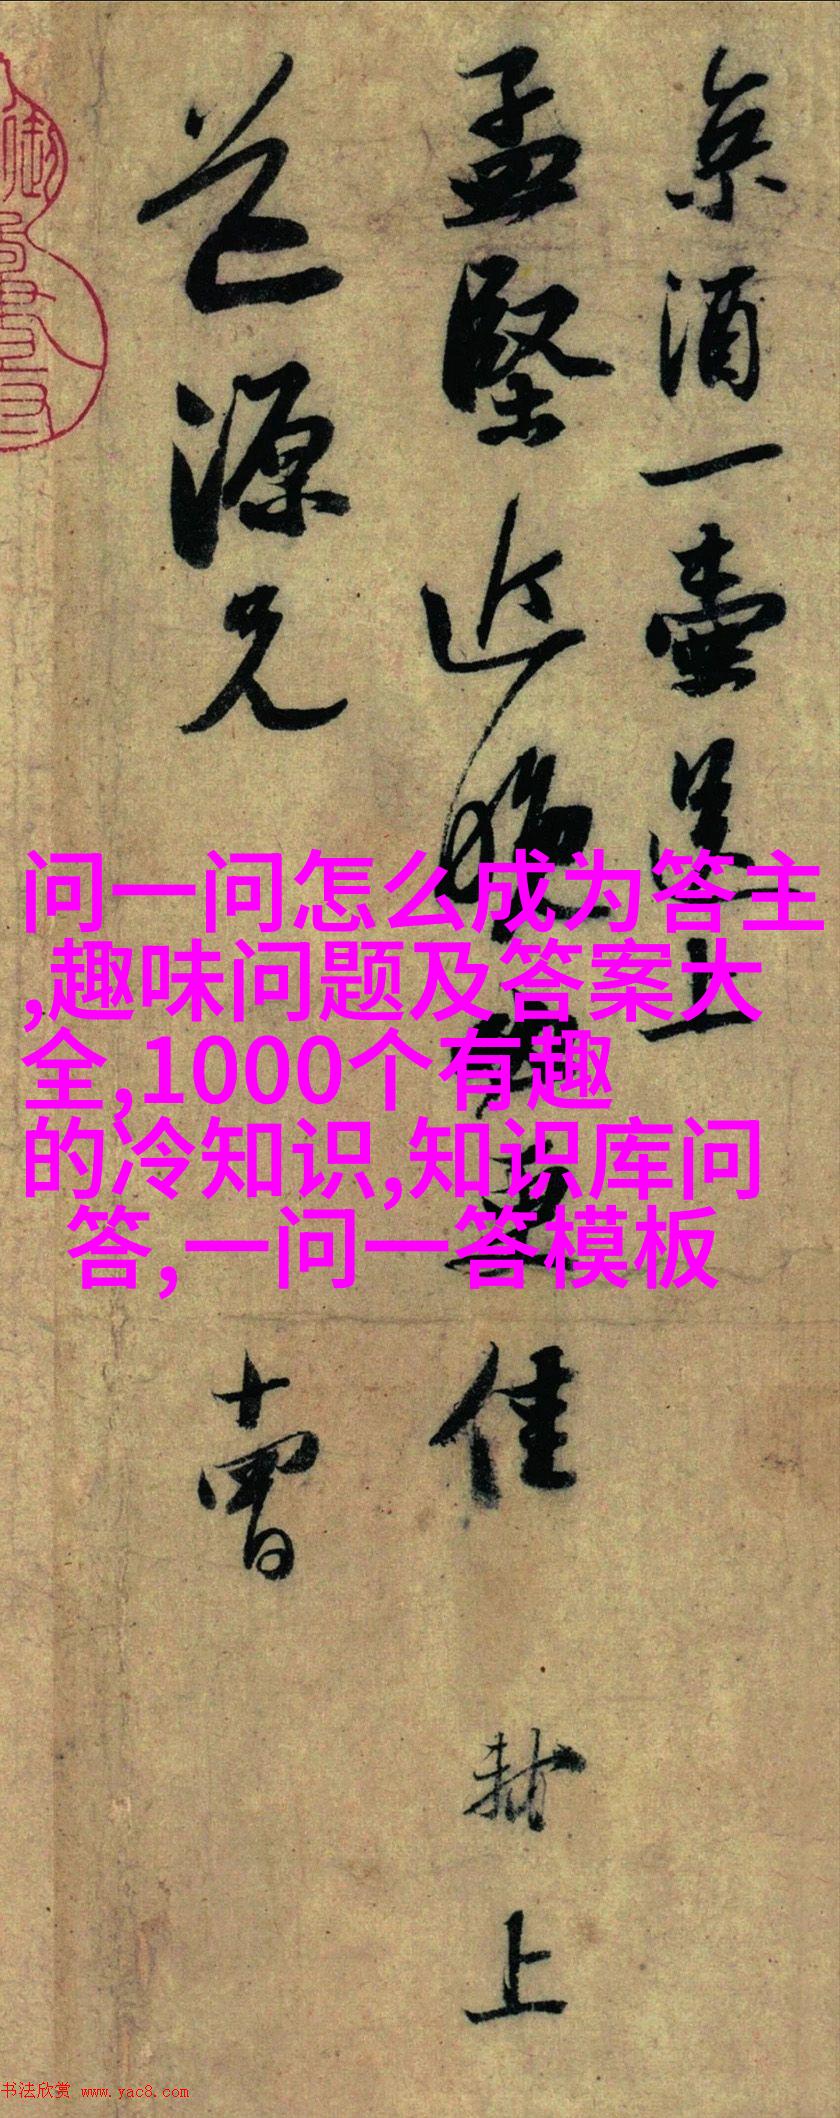 京酒一壶送上
孟坚近晚必更佳
封上
道源兄
十曹
问一问怎么成为答主
,趣味问题及答案大
全,1000个有趣
的冷知识,知识库问
答,一问一答模板
书法欣赏 www.yac8.com